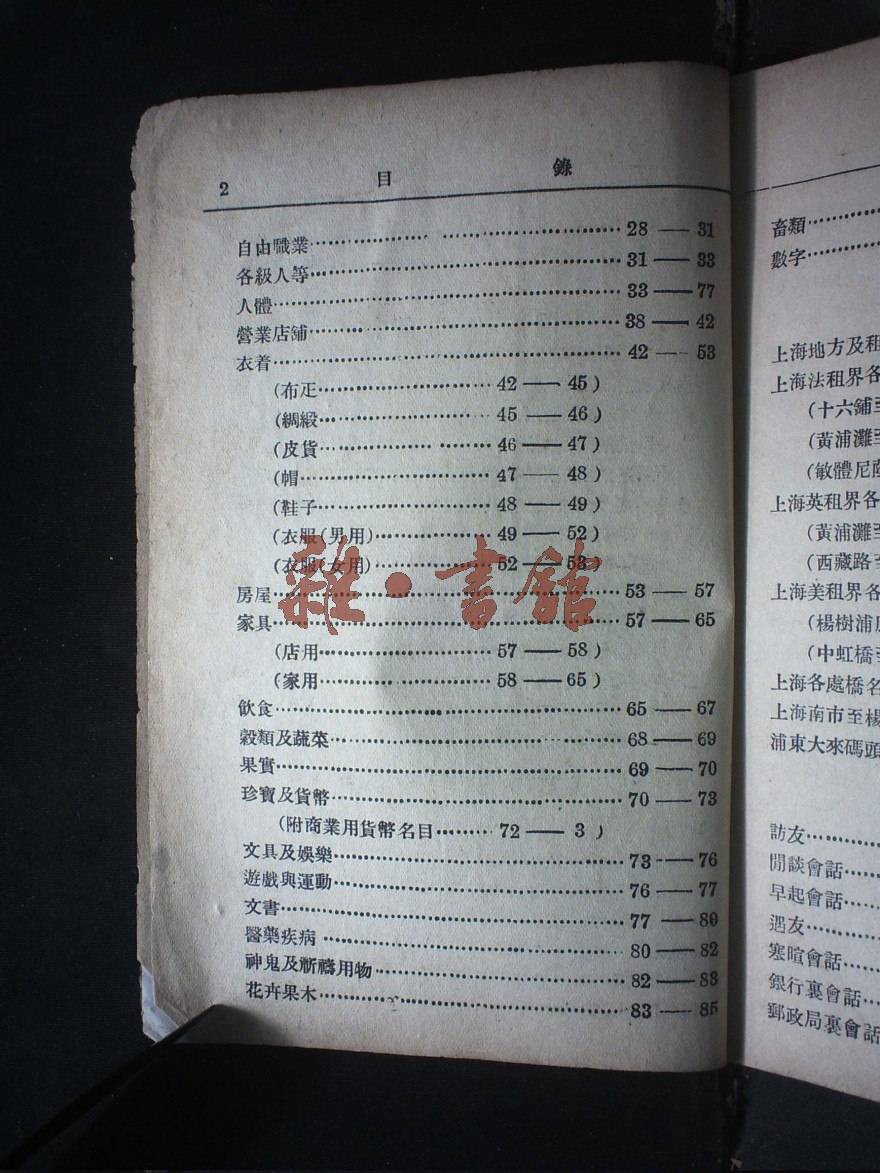 2 目 錄
自由職業 28 — 31
各級人等 31 — 33
人體 33 — 77
營業店舖 38 — 42
衣着 42 — 53
(布疋 42 — 45)
(綢緞 45 — 46)
(皮貨 46 — 47)
(帽 47 — 48)
(鞋子 48 — 49)
(衣服(男用) 49 — 52)
(衣服(女用) 52 — 53)
房屋 53 — 57
家具 57 — 65
(店用 57 — 58)
(家用 58 — 65)
飲食 65 — 67
穀類及蔬菜 68 — 69
果實 69 — 70
珍寶及貨幣 70 — 73
(附商業用貨幣名目 72 — 3)
文具及娛樂 73 — 76
遊戲與運動 76 — 77
文書 77 — 80
醫藥疾病 80 — 82
神鬼及祈禱用物 82 — 83
花卉果木 83 — 85
雜·書館
畜類
數字
上海地方及租
上海法租界各
(十六鋪至
(黃浦灘至
(敏體尼蔭
上海英租界各
(黃浦灘至
(西藏路至
上海美租界各
(楊樹浦
(中虹橋至
上海各處橋名
上海南市至楊
浦東大來碼頭
訪友
閒談會話
早起會話
遇友
寒暄會話
銀行裏會話
郵政局裏會話